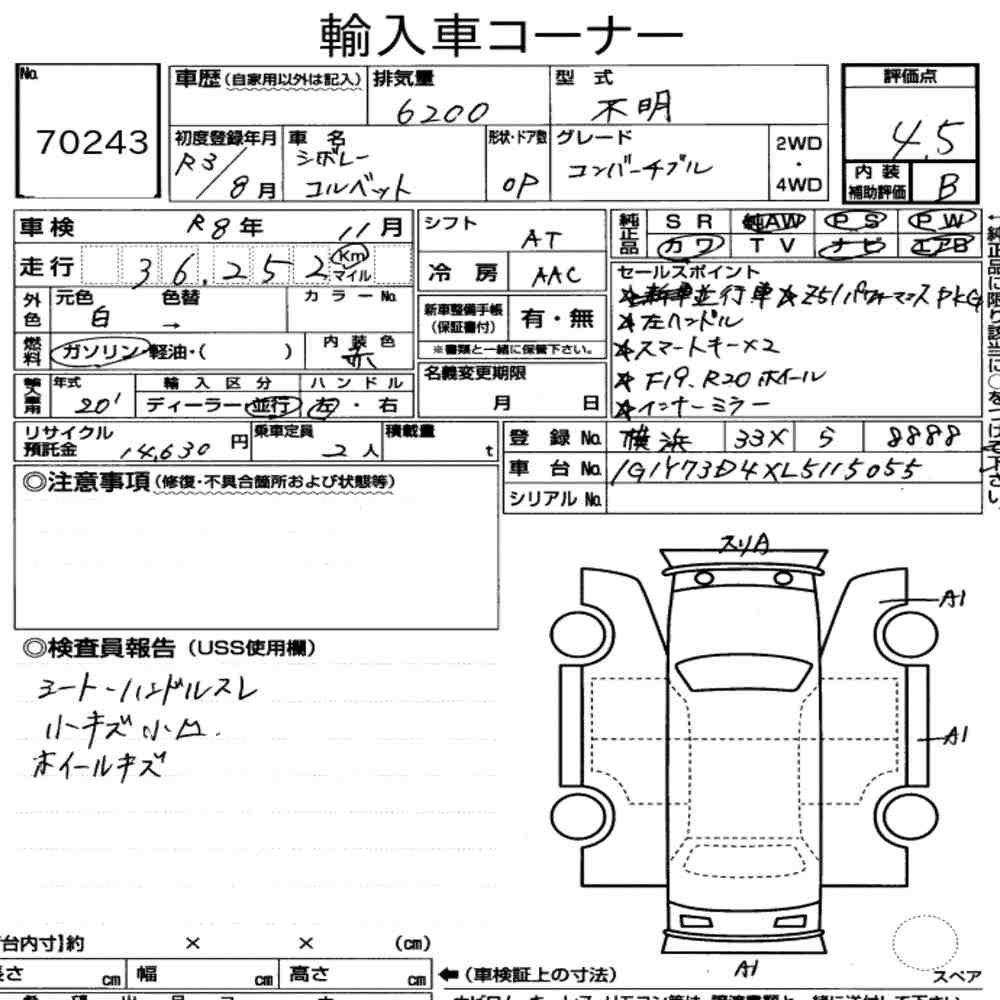 輸入車コーナー
No. 70243
車歴 (自家用以外は記入)
排気量 6200
型式 不明
評価点 4.5
初度登録年月 R3/8月
車名 シボレー コルベット
形状・ドア数 OP
グレード コンバーチブル
2WD・4WD
内装補助評価 B
車検 R8年 11月
シフト AT
純正品 SR 純AW PS PW
カワ TV ナビ エアB
走行 36,252 Km マイル
冷房 AAC
セールスポイント
★新車並行車 ★Z51パフォーマンスPKG
外色 元色 白 色替 → カラーNo.
新車整備手帳(保証書付) 有・無
★左ハンドル
※書類と一緒に保管下さい。
★スマートキー×2
燃料 ガソリン・軽油・( ) 内装色 赤
名義変更期限 月 日
★F19.R20ホイール
輸入車用 年式 20' 輸入区分 ディーラー・並行 ハンドル 左・右
★インナーミラー
←純正品に限り該当に○をつけて下さい。
リサイクル預託金 14,630円 乗車定員 2人 積載量 t
登録No. 横浜 33X ら 8888
車台No. 1G1Y73D4XL5115055
シリアルNo.
◎注意事項 (修復・不具合箇所および状態等)
◎検査員報告 (USS使用欄)
シート・ハンドルスレ
小キズ小凹.
ホイールキズ
スリA
A1
A1
A1
スペア
台内寸】約 × × (cm)
長さ cm 幅 cm 高さ cm
←(車検証上の寸法)